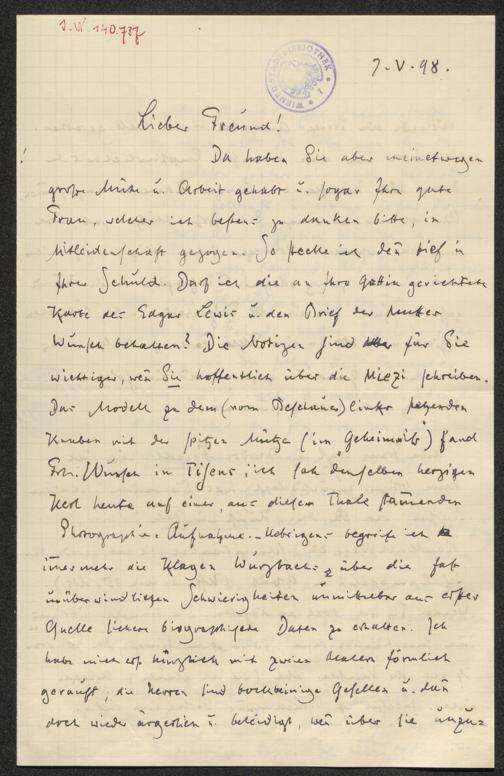 J.N. 140.737
WIENER STADTBIBLIOTHEK
7.V.98.
Lieber Freund!
Da haben Sie aber meinetwegen
große Mühe u. Arbeit gehabt u. sogar Ihre gute
Frau, welcher ich bestens zu danken bitte, in
Mitleidenschaft gezogen. So stecke ich den tief in
Ihrer Schuld. Darf ich die an Ihre Gattin gerichtete
Karte des Edgar Lewis u. den Brief der Mutter
Wunsch behalten? Die Notizen sind für Sie
wichtiger, wen Sie hoffentlich über die Miezi schreiben.
Das Modell zu dem (vom Beschauer) links
Knaben mit der spitzen Mütze (im "Geheimniß") fand
Frln. Wunsch in Tisens; ich sah denselben herzigen
Kerl heute auf einer, aus diesem Thale stamenden
Photographie-Aufnahme. – Uebrigens begreife ich
imer mehr die Klagen Wurzbachs über die fast
unüberwindlichen Schwierigkeiten unmittelbar aus erster
Quelle sichere biographische Daten zu erhalten. Ich
habe mich erst kürzlich mit zweien Malern förmlich
gerauft; die Herren sind bockbeinige Gesellen u. dan
doch wieder ärgerlich u. beleidigt, wen über sie unzu=